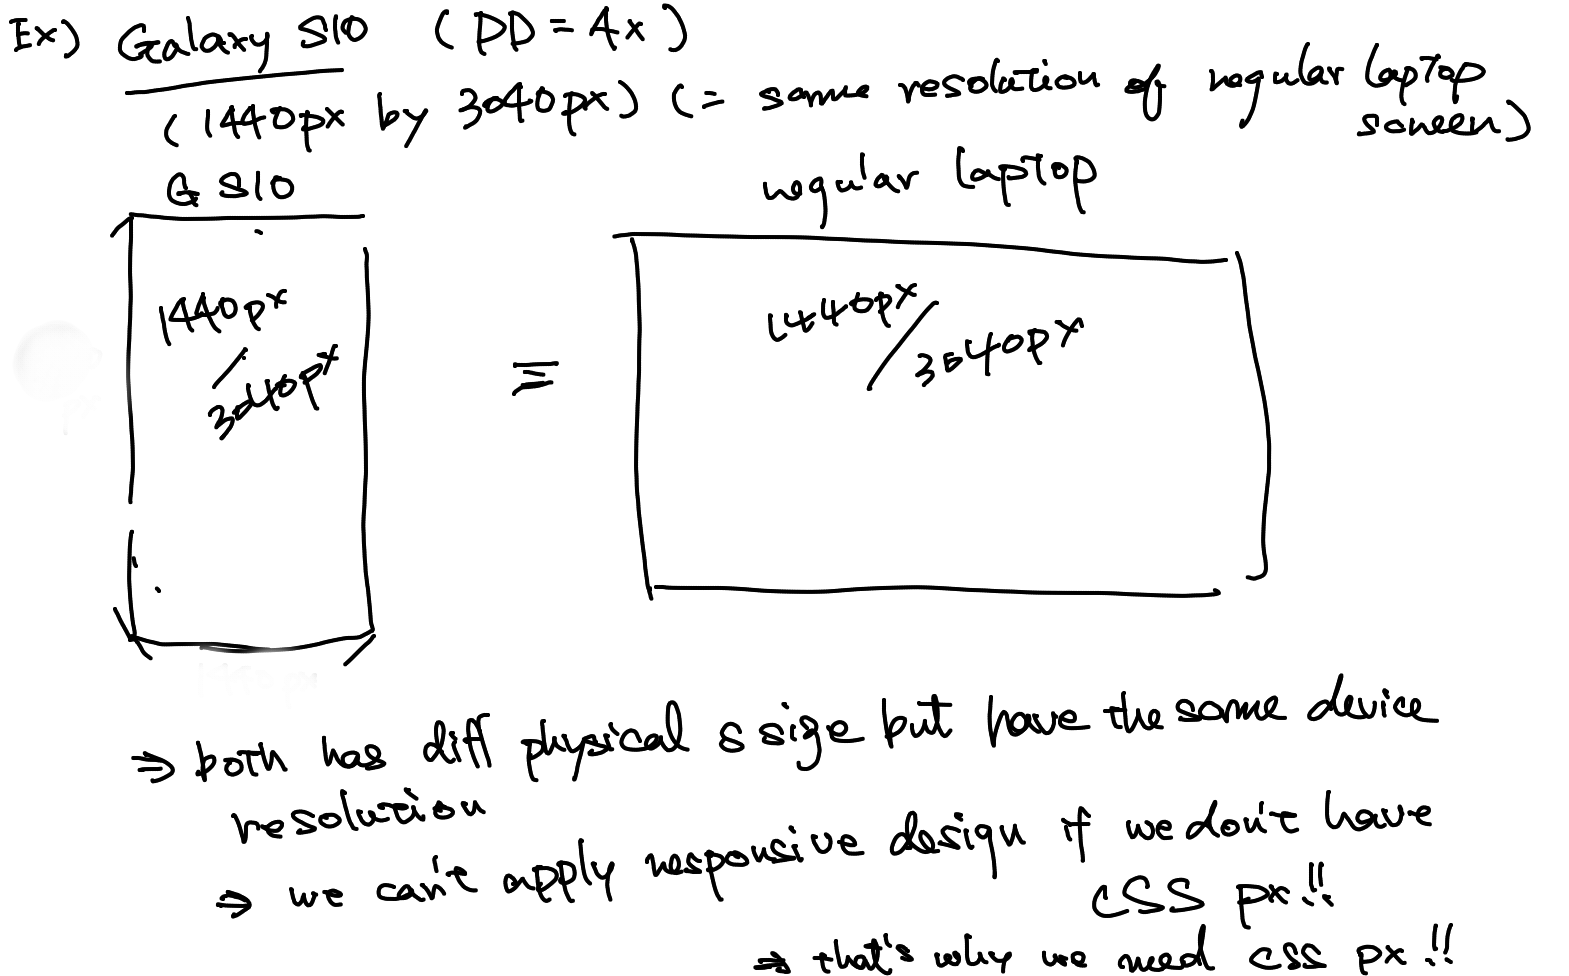 Ex) Galaxy S10 (DD = 4x)
(1440px by 3040px) (= same resolution of regular laptop
screen)
G S10
regular laptop
1440px
/
3040px
=
1440px
/ 3040px
⇒ both has diff physical s size but have the same device
resolution
⇒ we can't apply responsive design if we don't have
CSS px!!
⇒ that's why we need css px!!